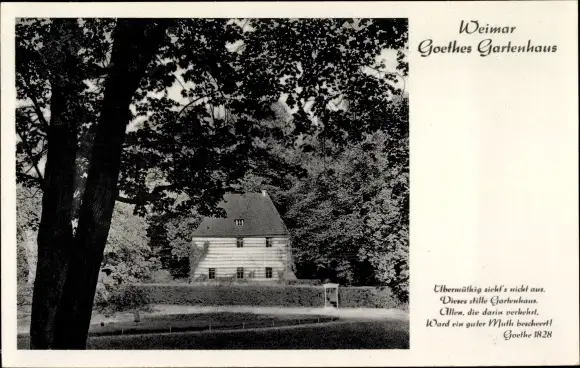 Weimar
Goethes Gartenhaus
Übermütig sieht's nicht aus,
Dieses stille Gartenhaus.
Allen, die darin verkehrt,
Ward ein guter Muth beschert!
Goethe 1828